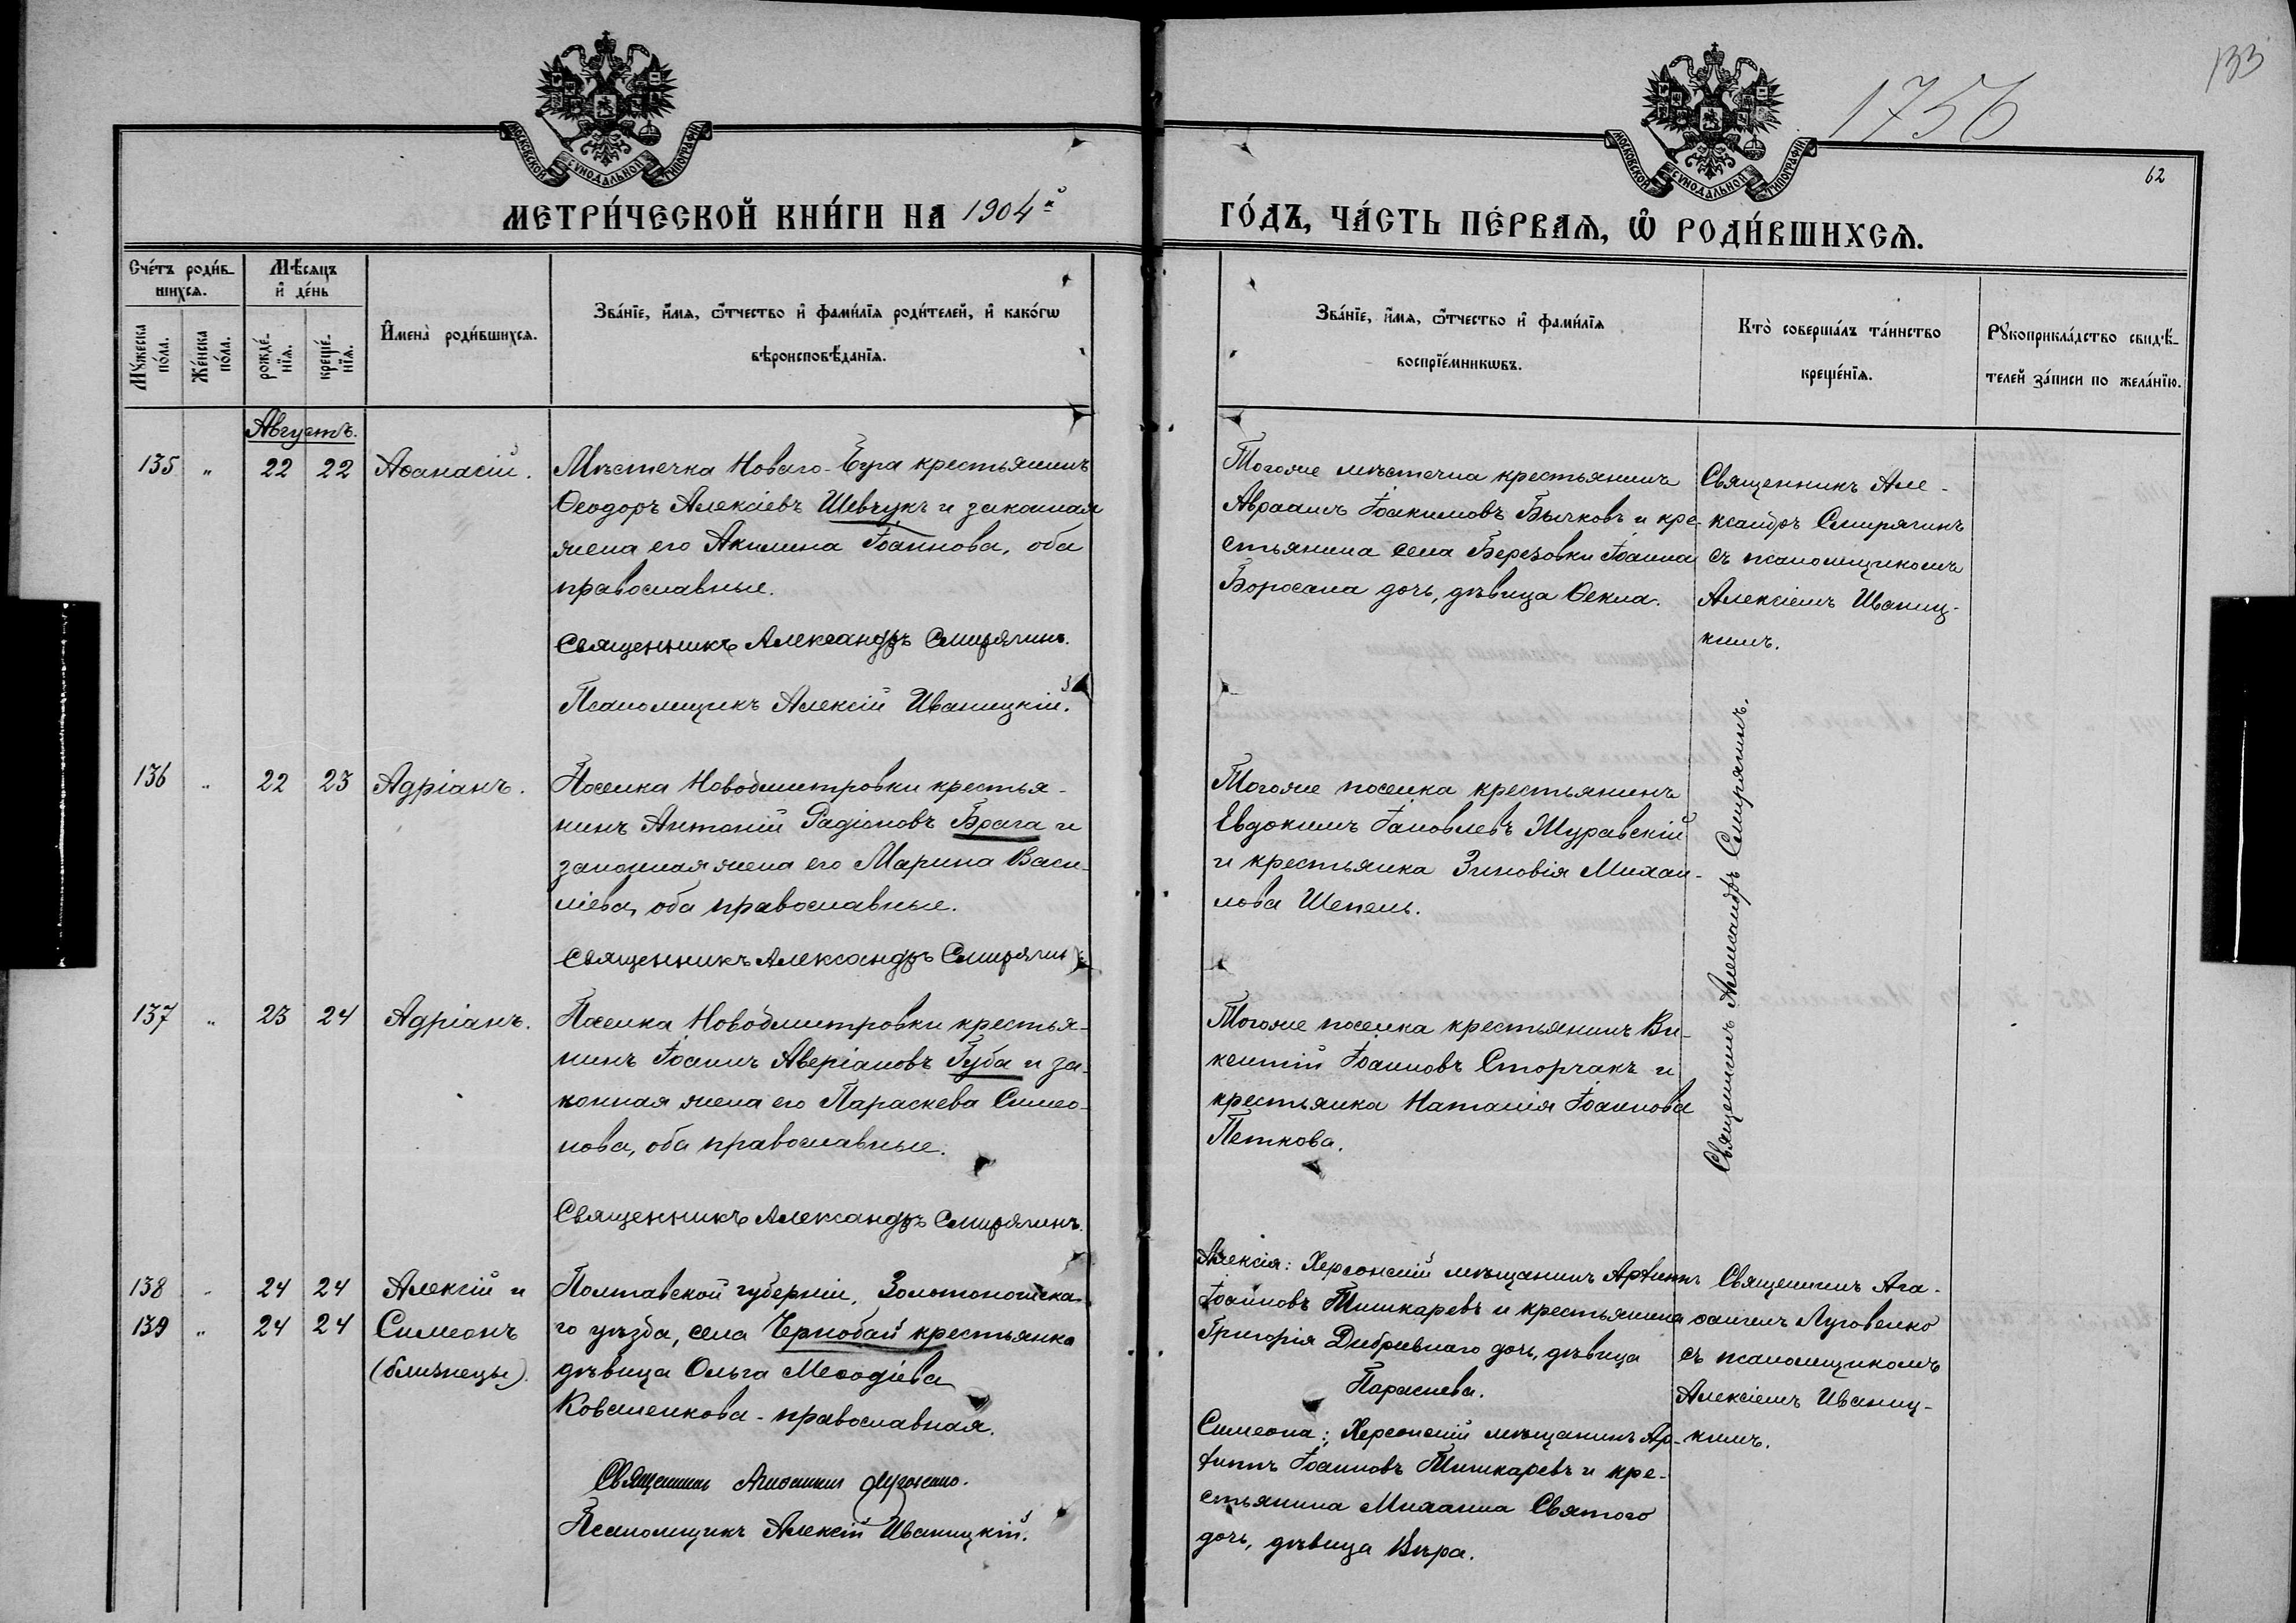 133
1756
62
МОСКОВСКОЙ СѴНОДАЛЬНОЙ ТИПОГРАФІИ
МОСКОВСКОЙ СѴНОДАЛЬНОЙ ТИПОГРАФІИ
МЕТРИ́ЧЕСКОЙ КНИ́ГИ НА 1904й
ГО́ДЪ, ЧА́СТЬ ПЕ́РВАѦ, Ѡ҆ РОДИ́ВШИХСѦ.
Сче́тъ роди́в-
шихсѧ.
Му́жеска
по́ла.
Же́нска
по́ла.
Мѣ́сѧцъ
и҆ де́нь
рожде́-
нїѧ.
креще́-
нїѧ.
И҆мена̀ роди́вшихсѧ.
Зва́нїе, и҆́мѧ, ѻ҆́тчество и҆ фами́лїѧ роди́телей, и҆ како́гѡ
вѣроисповѣ́данїѧ.
Зва́нїе, и҆́мѧ, ѻ҆́тчество и҆ фами́лїѧ
воспрїе́мникѡвъ.
Кто̀ соверша́лъ та́инство
креще́нїѧ.
Рꙋкоприкла́дство свидѣ́-
телей за́писи по жела́нїю.
Августъ.
135 " 22 22 Аѳанасій.
Мѣстечка Новаго-Буга крестьянинъ
Ѳеодоръ Алексіевъ Шевчукъ и законная
жена его Акилина Іоаннова, оба
православные.
Священникъ Александръ Смирягинъ.
Псаломщикъ Алексій Иваницкій.
Тогоже мѣстечка крестьянинъ
Авраамъ Іоакимовъ Бычковъ и кре-
стьянина села Березовки Іоанна
Боросана дочь, дѣвица Ѳекла.
Священникъ Але-
ксандръ Смирягинъ
съ псаломщикомъ
Алексіемъ Иваниц-
кимъ.
136 " 22 23 Адріанъ.
Поселка Новодмитровки крестья-
нинъ Антоній Радіоновъ Брага и
законная жена его Марина Васи-
ліева, оба православные.
Священникъ Александръ Смирягинъ
Тогоже поселка крестьянинъ
Евдокимъ Іаковлевъ Журавскій
и крестьянка Зиновія Михаи-
лова Шепель.
Священникъ Александръ Смирягинъ.
137 " 23 24 Адріанъ.
Поселка Новодмитровки крестья-
нинъ Іоаннъ Аверіановъ Губа и за-
конная жена его Параскева Симео-
нова, оба православные.
Священникъ Александръ Смирягинъ.
Тогоже поселка крестьянинъ Ви-
кентій Іоанновъ Сторчакъ и
крестьянка Наталія Іоаннова
Петкова.
138 " 24 24 Алексій и
139 " 24 24 Симеонъ
(близнецы).
Полтавской губерніи, Золотоношска-
го уѣзда, села Чернобай крестьянка
дѣвица Ольга Меѳодіева
Коваленкова - православная.
Священникъ Агаѳангелъ Луговенко.
Псаломщикъ Алексій Иваницкій.
Алексія: Херсонскій мѣщанинъ
Іоанновъ Тишкаревъ и крестьянина
Григорія дочь, дѣвица
Параскева.
Симеона: Херсонскій мѣщанинъ
Іоанновъ Тишкаревъ и кре-
стьянина Михаила Святого
дочь, дѣвица Вѣра.
Священникъ Ага-
ѳангелъ Луговенко
съ псаломщикомъ
Алексіемъ Иваниц-
кимъ.